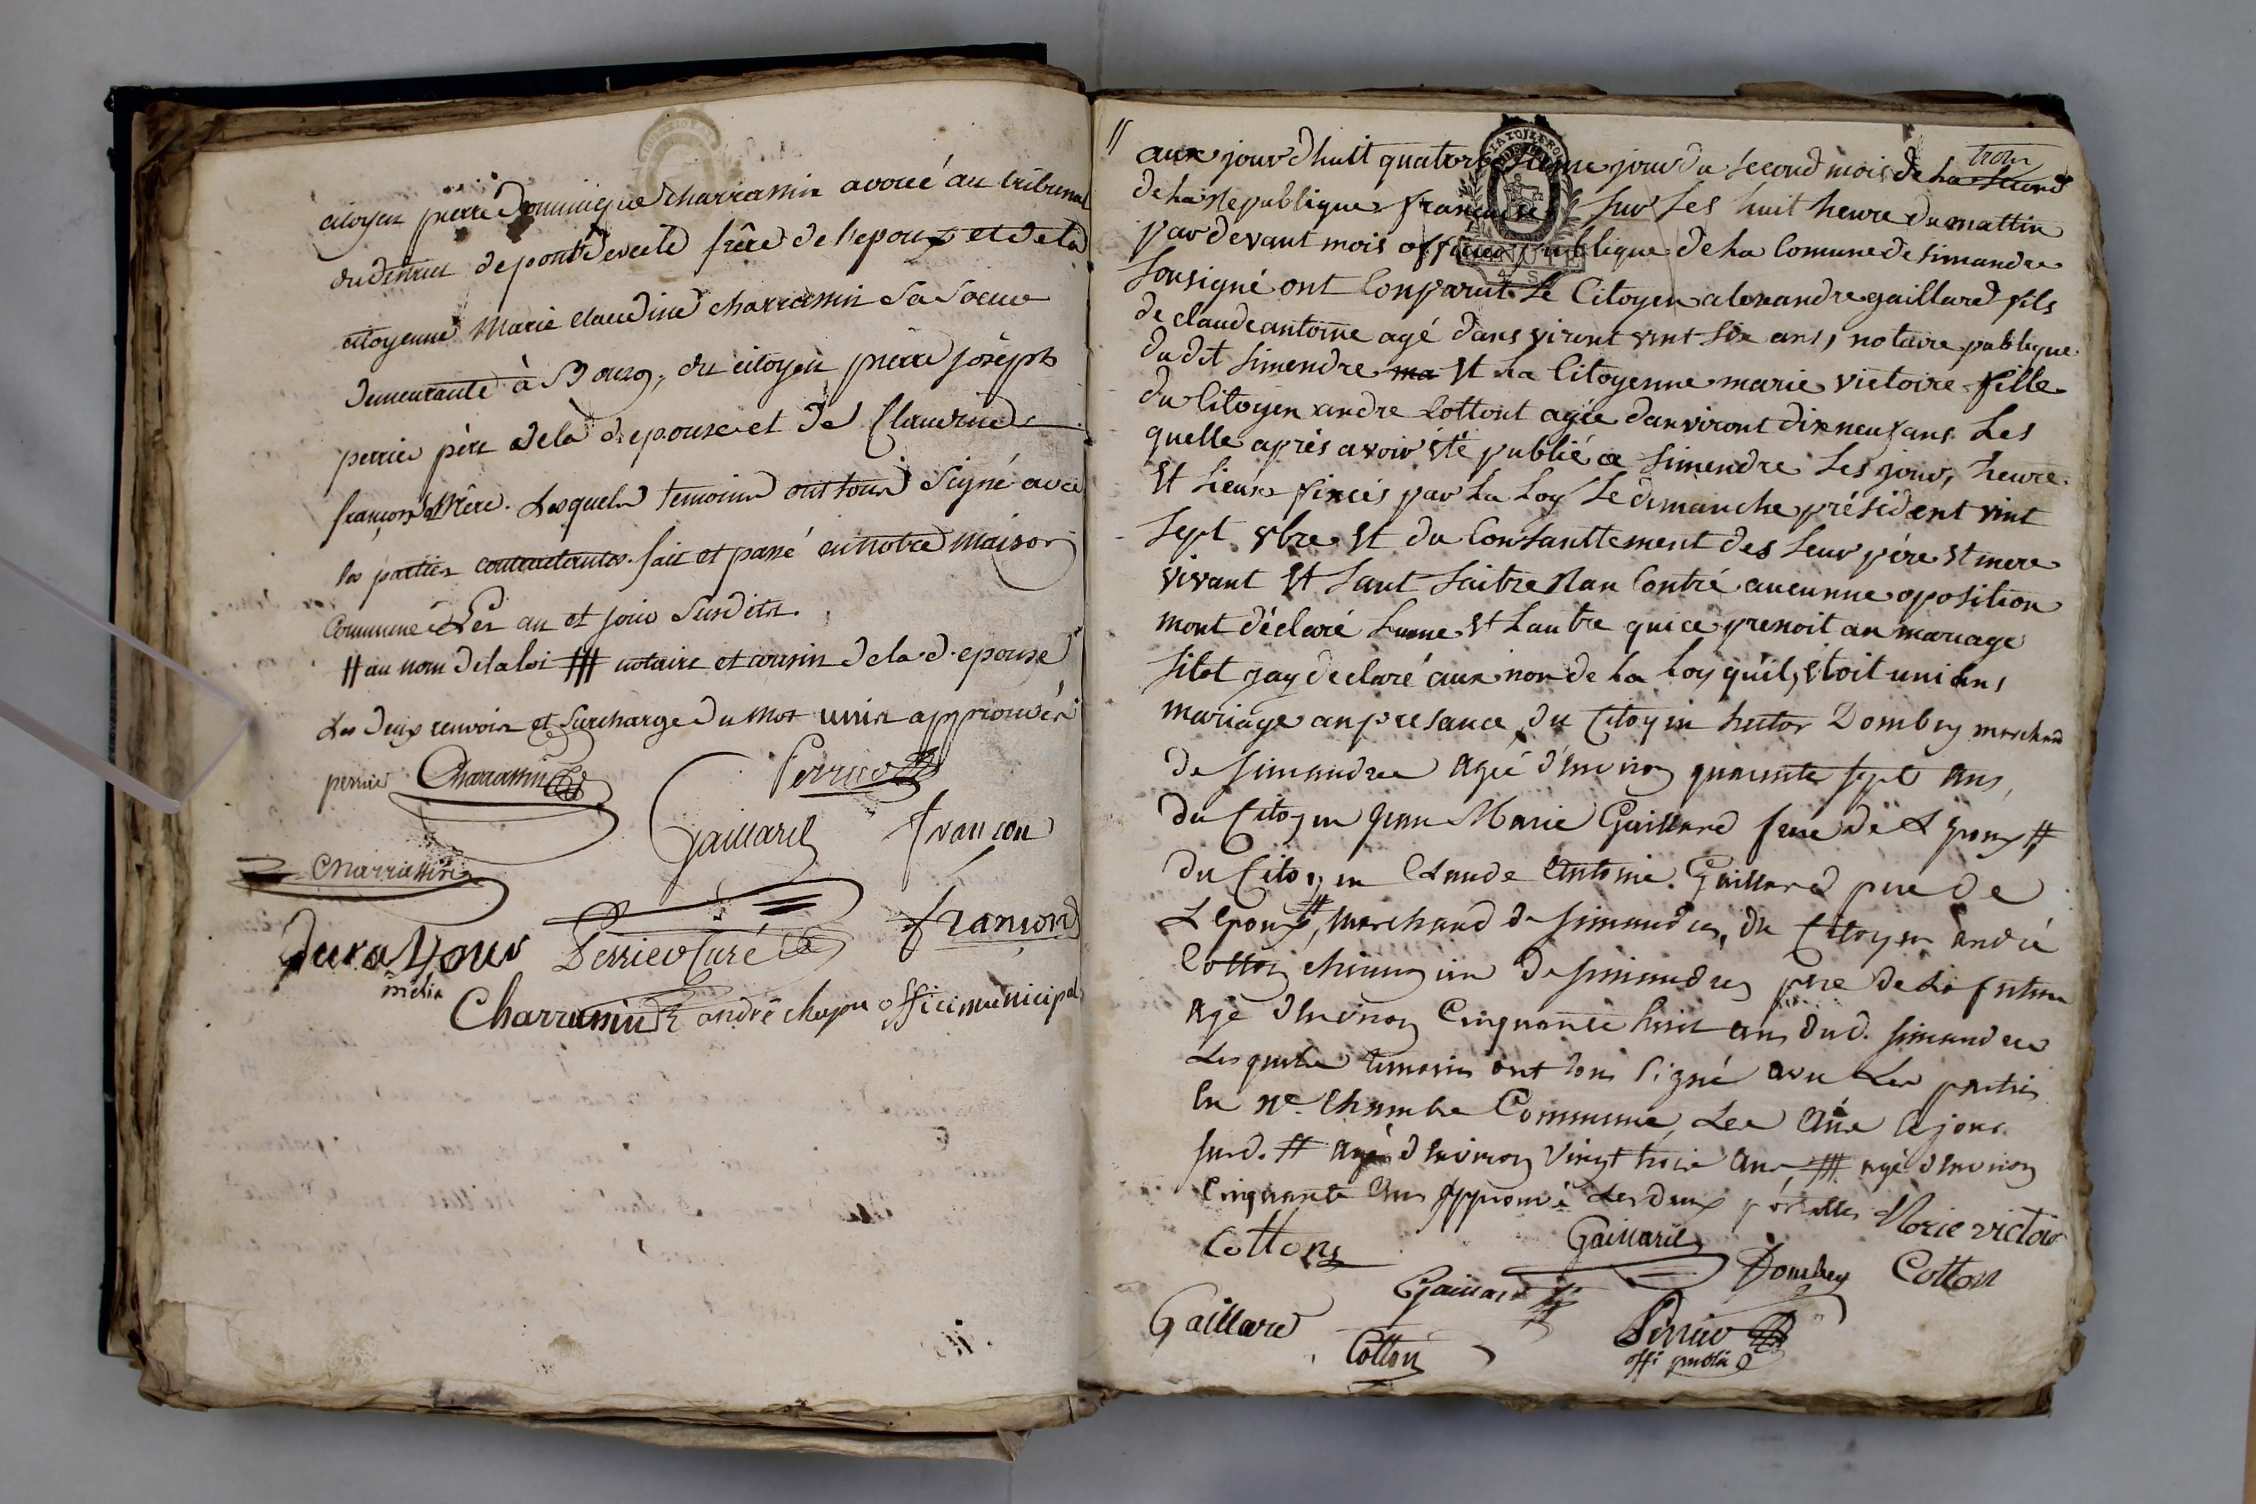 citoyen pierre Dominique charrassin avoué au tribunal
du district de pont de vecele frère de l'epoux et de la
citoyenne Marie claudine charrassin sa soeur
demeurante à Bourg, du citoyen pierre joséph
perrier père de la d. epouse et de Claudine
françon Mère. Lesquels temoins ont tous signé avec
les parties contractantes. fait et passé en notre maison
Commune Les an et jour susdits.
# au nom de la loi ## notaire et cousin de la d. epouse
Les deux renvois et surcharge du mot unis approuvés
perrier Charrassin Perrier
Gaillard françon
Charrassin
Durafour Perrier Curé françon
Charrassin andré chapon offici municipal
aux jourdhuit quatorzieme jour du second mois de la second trois
de la Republique francaise sur les huit heure du mattin
par devant mois officier publique de la Comune de simandre
sousigné ont Conparut le Citoyen alexandre gaillard fils
de claude antoine agé danviront vint six ans, notaire publique
dudit simendre ma et la Citoyenne marie victoire fille
du Citoyen andre Cottont agée danviront dixneuf ans Les
quelle après avoir été publié a simendre Les jour, heure
et Lieux fixcés par La Loy Le dimanche président vint
sept vbre et du Consanttement des Leur père et mere
vivant et sant saitre Ran Contré aucunne oposition
mont déclaré Lunne et Lautre quice prenoit an mariage
sitot jay déclaré aux non de La Loy quil, etoit uni ans
mariage anpresance du Citoyen hector Dombey marchand
de simandre agé d'environ quarante sept ans,
du Citoyen jean Marie Gaillard frere de L'epoux #
du Citoyen Claude Antoine Gaillard pere de
L'epoux ##, marchand de simandre, du Citoyen andré
Cotton chirurgien de simandre pere de la future
agé d'environ Cinquante huit ans dud. simandre
Lesquels temoins ont tous signé avec Les parties
en ne. Chambre Commune, Les An e jour
susd. # agé d'environ vingt trois ans ## agé d'environ
Cinquante ans approuvé Les deux
Cotton Gaillard Marie victoir
Gaillard Dombey Cotton
Gaillard Cotton Perrier
offi public